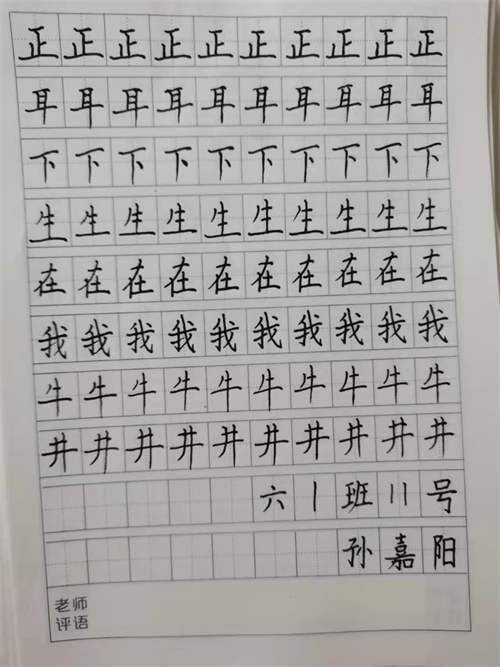 正正正正正正正正正正
耳耳耳耳耳耳耳耳耳耳
下下下下下下下下下下
生生生生生生生生生生
在在在在在在在在在在
我我我我我我我我我我
牛牛牛牛牛牛牛牛牛牛
井井井井井井井井井井
六1班11号
孙嘉阳
老师
评语